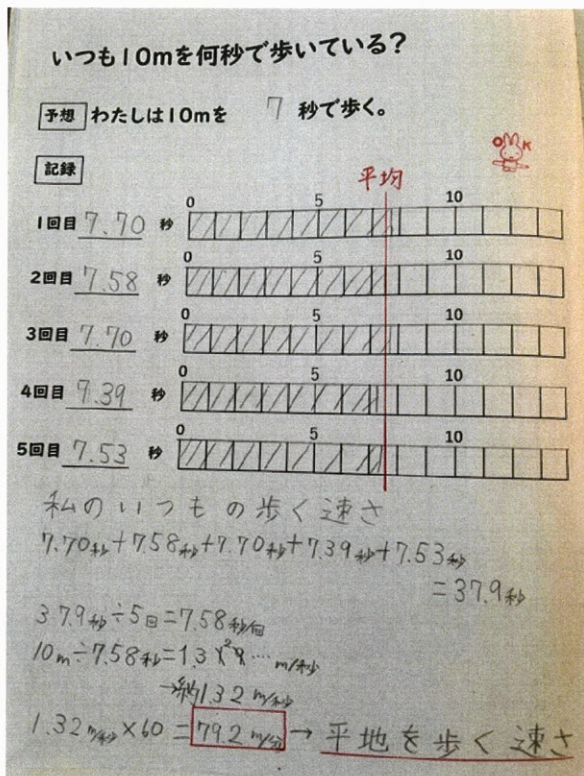 いつも10mを何秒で歩いている?
予想 わたしは10mを 7 秒で歩く。
OK
記録
平均
0 5 10
1回目 7.70 秒
0 5 10
2回目 7.58 秒
0 5 10
3回目 7.70 秒
0 5 10
4回目 7.39 秒
0 5 10
5回目 7.53 秒
私のいつもの歩く速さ
7.70秒+7.58秒+7.70秒+7.39秒+7.53秒
=37.9秒
37.9秒÷5回=7.58秒/回
10m÷7.58秒=1.31 … m/秒
→約1.32m/秒
1.32m/秒×60=79.2m/分→平地を歩く速さ